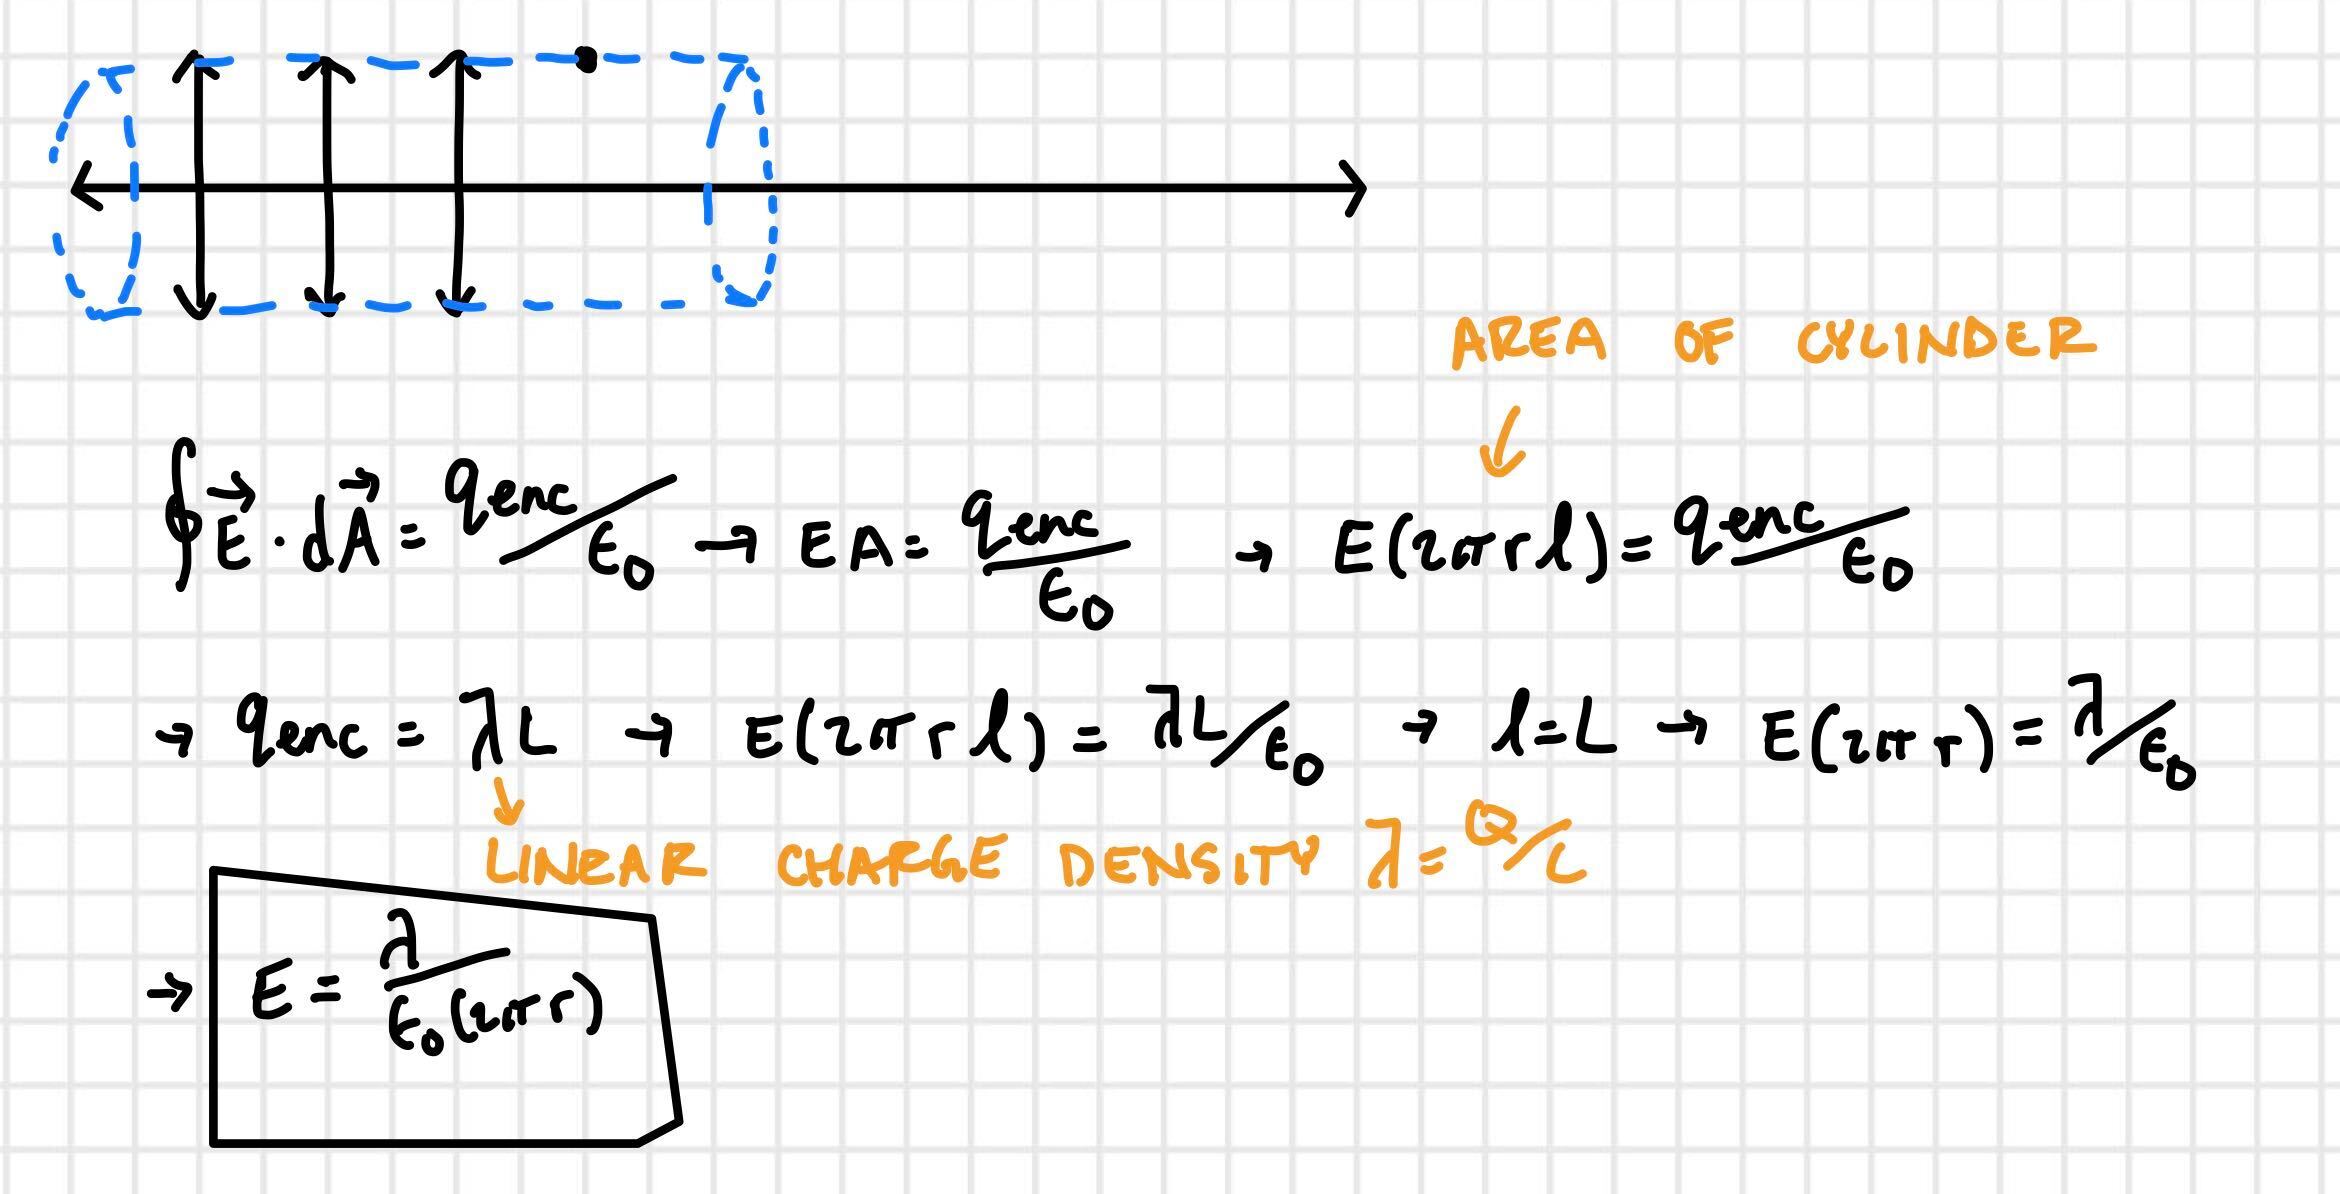 AREA OF CYLINDER
↓
∮E⃗ · dA⃗ = qenc/ϵ0 → EA = qenc/ϵ0 → E(2πrl) = qenc/ϵ0
→ qenc = λL → E(2πrl) = λL/ϵ0 → l=L → E(2πr) = λ/ϵ0
↓
LINEAR CHARGE DENSITY λ = Q/L
→ E = λ/ϵ0(2πr)